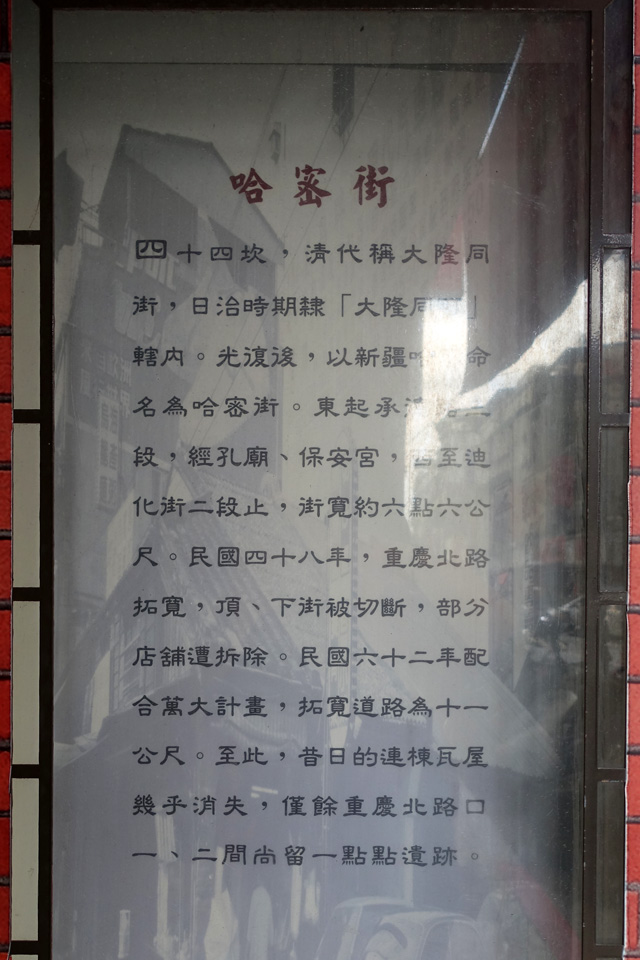 哈密街
四十四坎，清代稱大隆同
街，日治時期隸「大隆同」
轄內。光復後，以新疆哈命
名為哈密街。東起承
段，經孔廟、保安宮，西至迪
化街二段止，街寬約六點六公
尺。民國四十八年，重慶北路
拓寬，頂、下街被切斷，部分
店舖遭拆除。民國六十二年配
合萬大計畫，拓寬道路為十一
公尺。至此，昔日的連棟瓦屋
幾乎消失，僅餘重慶北路口
一、二間尚留一點點遺跡。